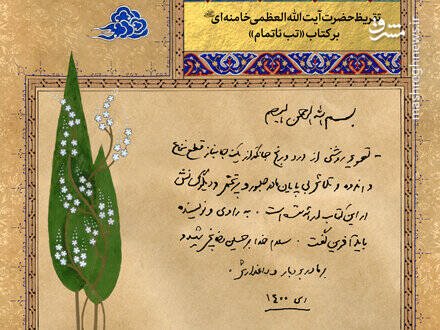 تقریظ حضرت آیت الله العظمی خامنه‌ای
بر کتاب «تب ناتمام»
بسم الله الرحمن الرحیم
تصویر روشنی از درد و رنج جانگداز یک جانباز قطع نخاع
و اندوه و تلاش بی پایان مادر صبور و پرتحمل و دیگر کسانش
در این کتاب ارائه شده است. به راوی و نویسنده
باید آفرین گفت. سلام خدا بر حسین شهید و
بر مادر بردبار و فداکارش.
دی ۱۴۰۰
مشرق
mashreghnews.ir